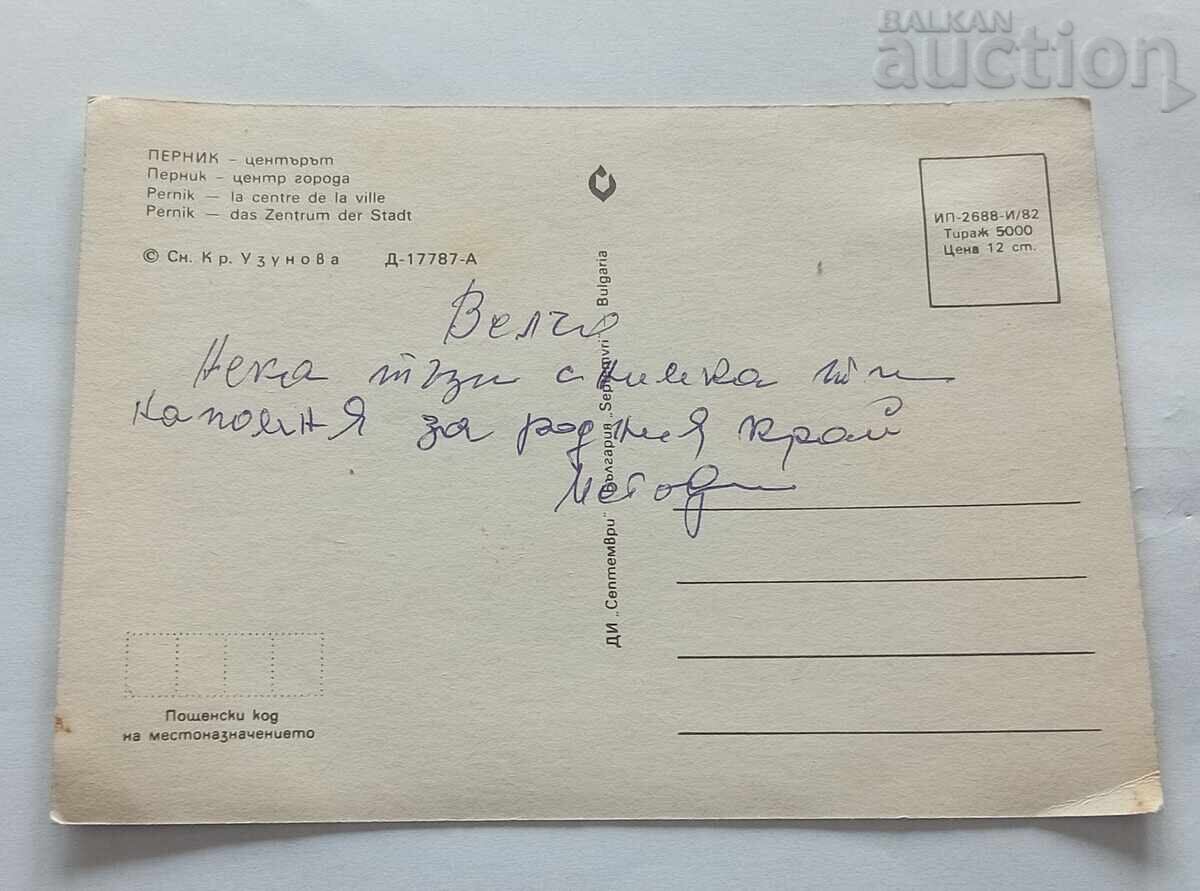 BALKAN
auction
ПЕРНИК – центърът
Перник - центр города
Pernik — la centre de la ville
Pernik — das Zentrum der Stadt
© Сн. Кр. Узунова Д-17787-А
ИП-2688-И/82
Тираж 5000
Цена 12 ст.
Велчо
Нека тъзи снимка ти
напомня за родния край
Методи
ДИ „Септември" България „Septemvri" Bulgaria
Пощенски код
на местоназначението